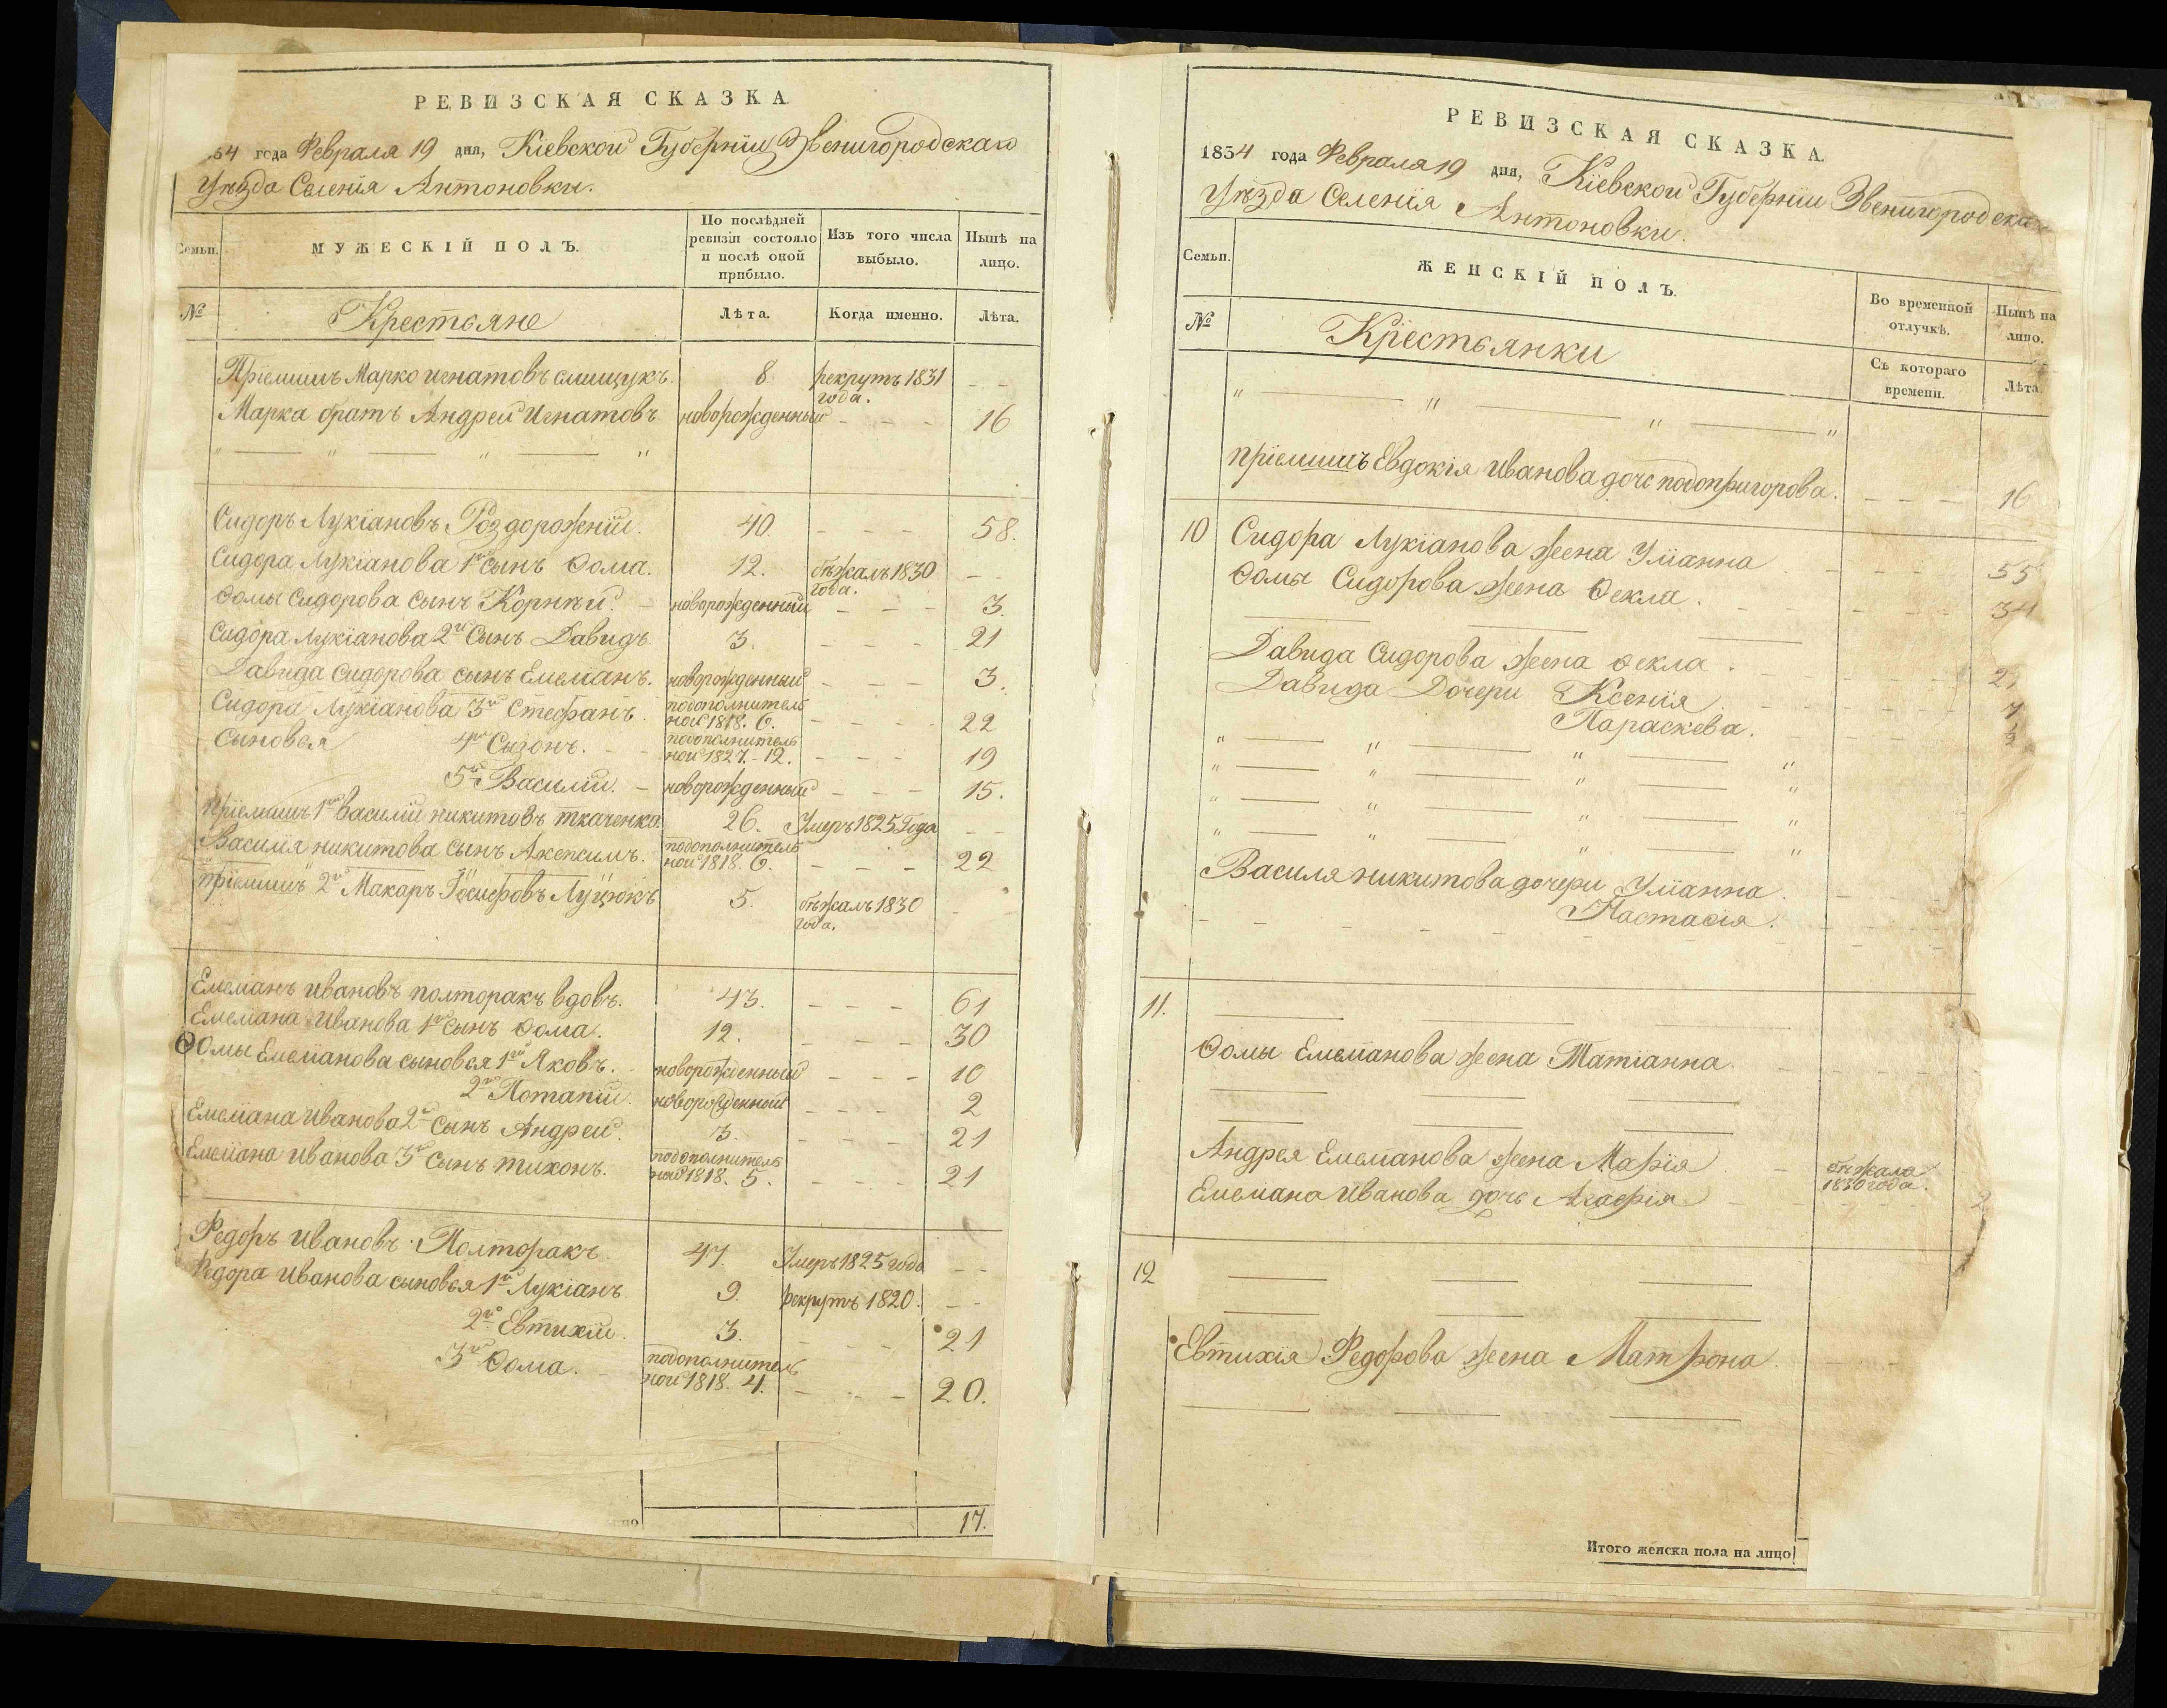 РЕВИЗСКАЯ СКАЗКА
54 года Февраля 19 дня, Кіевской Губерніи Звенигородскаго
Уѣзда Селенія Антоновки.
Семьи.
МУЖЕСКІЙ ПОЛЪ.
По послѣдней
ревизіи состояло
и послѣ оной
прибыло.
Изъ того числа
выбыло.
Нынѣ на
лицо.
№
Крестьяне
Лѣта.
Когда именно.
Лѣта.
Пріемишъ Марко игнатовъ 8 рекрутъ 1831
года.
Марка братъ Андрей Игнатовъ новорожденный 16
Сидоръ Лукіановъ Роздорожній. 40. 58.
Сидора Лукіанова 1й сынъ Ѳома. 12. бѣжалъ 1830
года.
Ѳомы Сидорова сынъ Корнѣй. новорожденный 3.
Сидора Лукіанова 2й Сынъ Давидъ 3. 21
Давида Сидорова сынъ Емеліанъ. новорожденный 3.
Сидора Лукіанова 3й Стефанъ. подополнитель
ной 1818. 6. 22
сыновья 4й Сызонъ. подополнитель
ной 1827. - 12. 19
5й Василій. новорожденный 15.
пріемишъ 1й Василій никитовъ ткаченко. 26. Умеръ 1825 Года
Василія никитова сынъ Акепсимъ. подополнитель
ной 1818. 6. 22
пріемишъ 2й Макаръ Іосифовъ Луцюкъ 5. бѣжалъ 1830
года.
Емеліанъ ивановъ полторакъ вдовъ. 43. 61
Емеліана Иванова 1й сынъ Ѳома. 12. 30
Ѳомы Емеліанова сыновья 1й Яковъ. новорожденный 10
2й Потапій. новорожденный 2
Емеліана Иванова 2й сынъ Андрей. 3. 21
Емеліана иванова 3й сынъ тихонъ. подополнитель
ной 1818. 5. 21
Федоръ ивановъ Полторакъ. 47. Умеръ 1825 года
Федора иванова сыновья 1й Лукіанъ. 9. рекрутъ 1820.
2й Евтихій. 3. 21
3й Ѳома. подополнитель
ной 1818. 4. 20.
17.
РЕВИЗСКАЯ СКАЗКА.
1834 года Февраля 19 дня, Кіевской Губерніи Звенигородска
Уѣзда Селенія Антоновки.
Семьи.
ЖЕНСКІЙ ПОЛЪ.
Во временной
отлучкѣ.
Нынѣ на
лицо.
№
Крїестьянки
Съ котораго
времени.
Лѣта
пріемишъ Евдокія иванова дочь подопригорова. 16
10 Сидора Лукіанова жена Уліанна 55
Ѳомы Сидорова жена Ѳекла. 34
Давида Сидорова жена Ѳекла.
Давида Дочери Ксенія 7
Параскева.
Василя никитова дочери Уліанна.
Настасія.
11.
Ѳомы Емеліанова жена Татіанна.
Андрея Емеліанова жена Марія бѣжала
1830 года.
Емеліана Иванова дочь Агафія 2
12
Евтихія Федорова жена Матрона
Итого женска пола на лицо